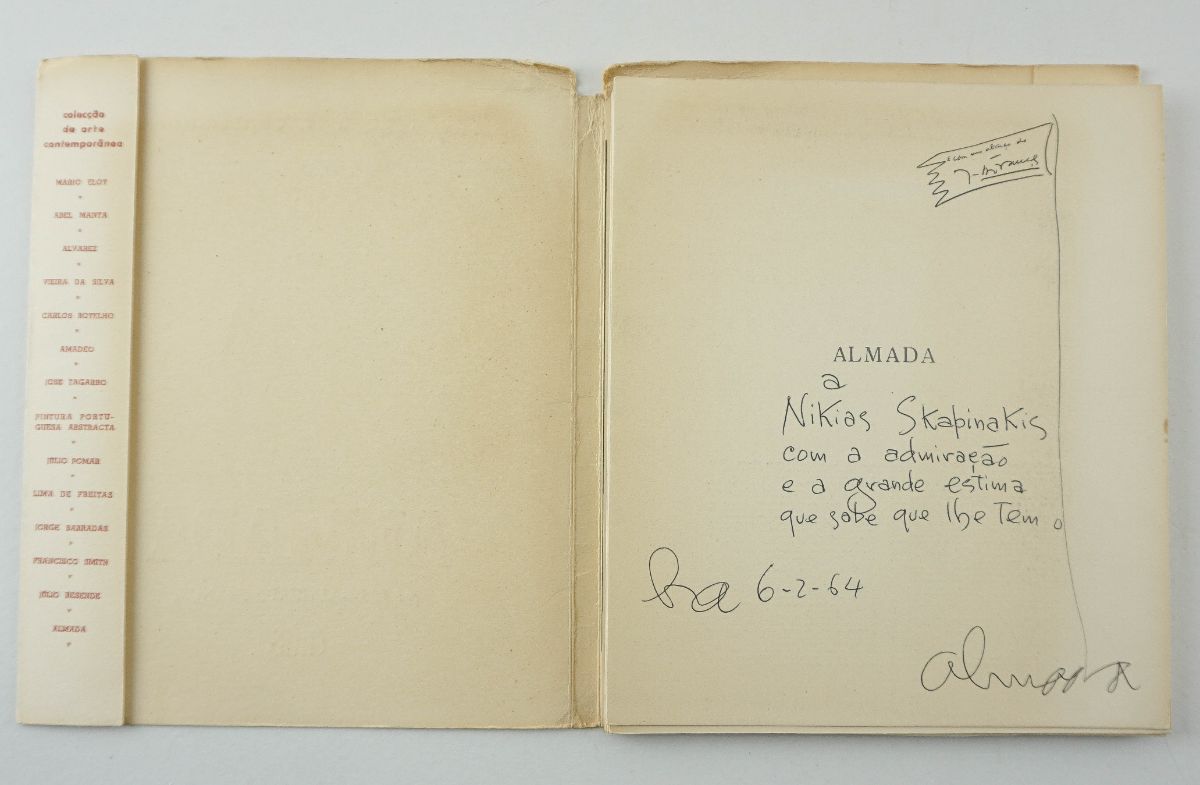 colecção
de arte
contemporânea
MARIO ELOY
ABEL MANTA
ALVAREZ
VIEIRA DA SILVA
CARLOS BOTELHO
AMADEO
JOSÉ TAGARRO
PINTURA PORTU-
GUESA ABSTRACTA
JÚLIO POMAR
LIMA DE FREITAS
JORGE BARRADAS
FRANCISCO SMITH
JÚLIO RESENDE
ALMADA
e com um abraço do
ALMADA
a
Nikias Skapinakis
com a admiração
e a grande estima
que sabe que lhe tem o
6-2-64
almada